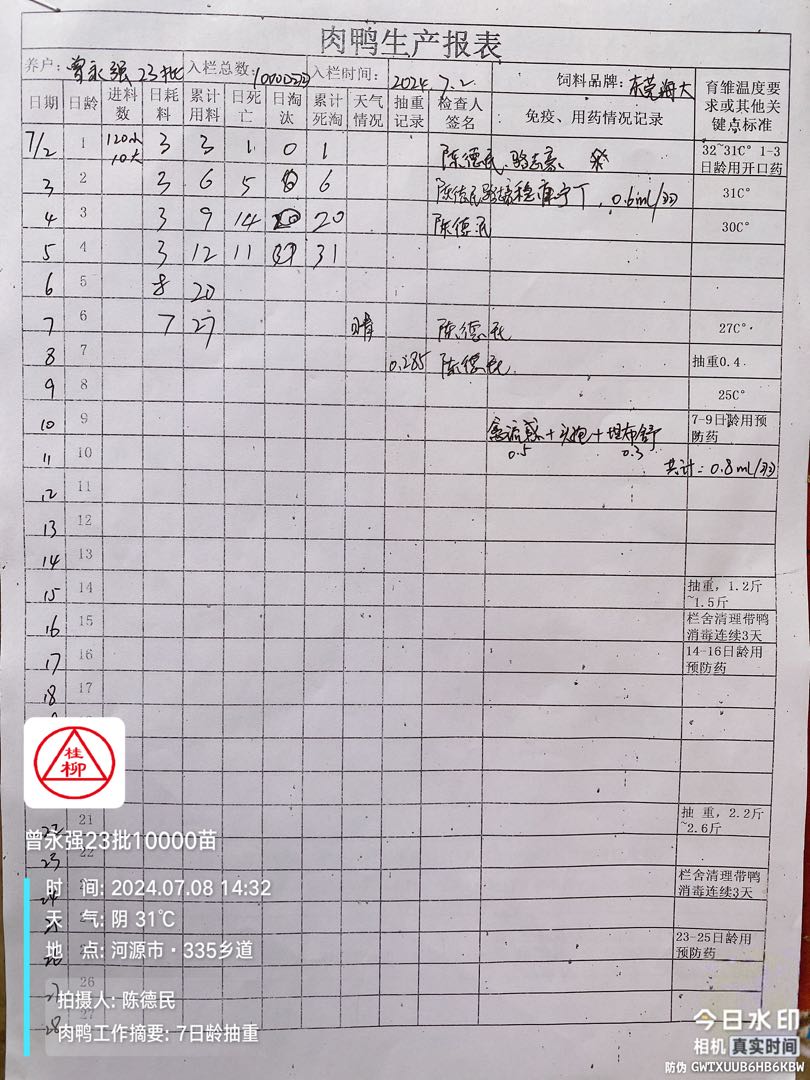 肉鸭生产报表
养户: 曾永强 23批 入栏总数: 入栏时间: 2024.7.2 饲料品牌: 东莞海大
日期 日龄 进料数 日耗料 累计用料 日死亡 日淘汰 累计死淘 天气情况 抽重记录 检查人签名 免疫、用药情况记录 育雏温度要求或其他关键点标准
7/2 1 120小 10大 3 3 1 0 1 陈德民 32~31C° 1-3日龄用开口药
3 2 3 6 5 6 0.6ml/羽 31C°
4 3 3 9 14 20 陈德民 30C°
5 4 3 12 11 31
6 5 8 20
7 6 7 27 晴 陈德民 27C°
8 7 0.285 陈德民 抽重0.4
9 8 25C°
10 9 7-9日龄用预防药
0.5 0.3
11 10 共计: 0.8ml/羽
12 11
13 12
14 13
15 14 抽重, 1.2斤~1.5斤
16 15 栏舍清理带鸭消毒连续3天
17 16 14-16日龄用预防药
18 17
桂柳
21 抽 重, 2.2斤~2.6斤
曾永强23批10000苗
23 22
栏舍清理带鸭消毒连续3天
时 间: 2024.07.08 14:32
天 气: 阴 31℃
地 点: 河源市·335乡道
23-25日龄用预防药
26
拍摄人: 陈德民
28 27
肉鸭工作摘要: 7日龄抽重
今日水印
相机 真实时间
防伪 GWTXUUB6HB6KBW